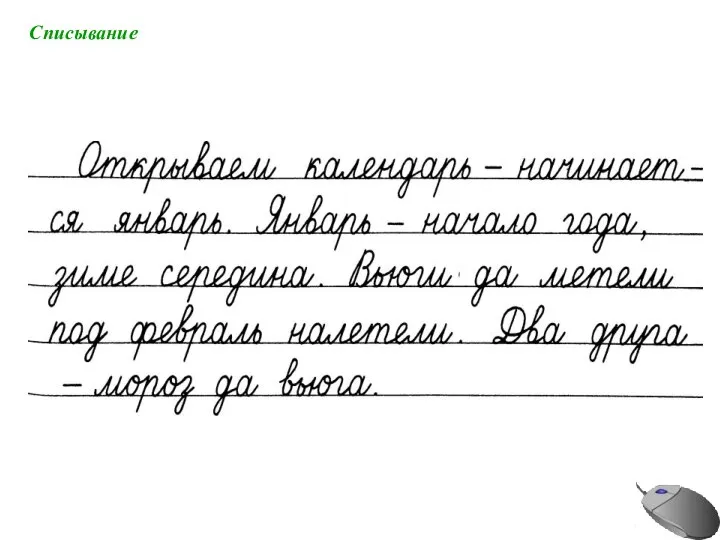 Списывание
Открываем календарь – начинает-
ся январь. Январь – начало года,
зиме середина. Вьюги да метели
под февраль налетели. Два друга
– мороз да вьюга.